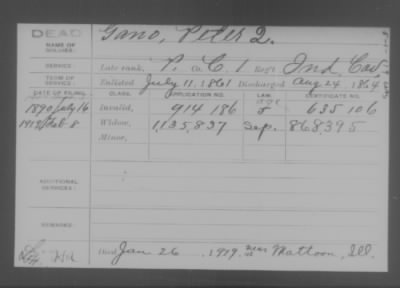 DEAD
NAME OF SOLDIER:
Gano, Peter Q.
SERVICE:
Late rank, P. Co. C, 1 Reg't Ind. Cav
TERM OF SERVICE:
Enlisted July 11, 1861 Discharged Aug 24 1864
DATE OF FILING. CLASS. APPLICATION NO. LAW. CERTIFICATE NO.
1890 July 16 Invalid, 914 186 635 106
1919 Feb 8 Widow, 1,135,837 Sep. 868,395
Minor,
ADDITIONAL SERVICES:
REMARKS:
Died Jan 26, 1919, near Mattoon, Ill.